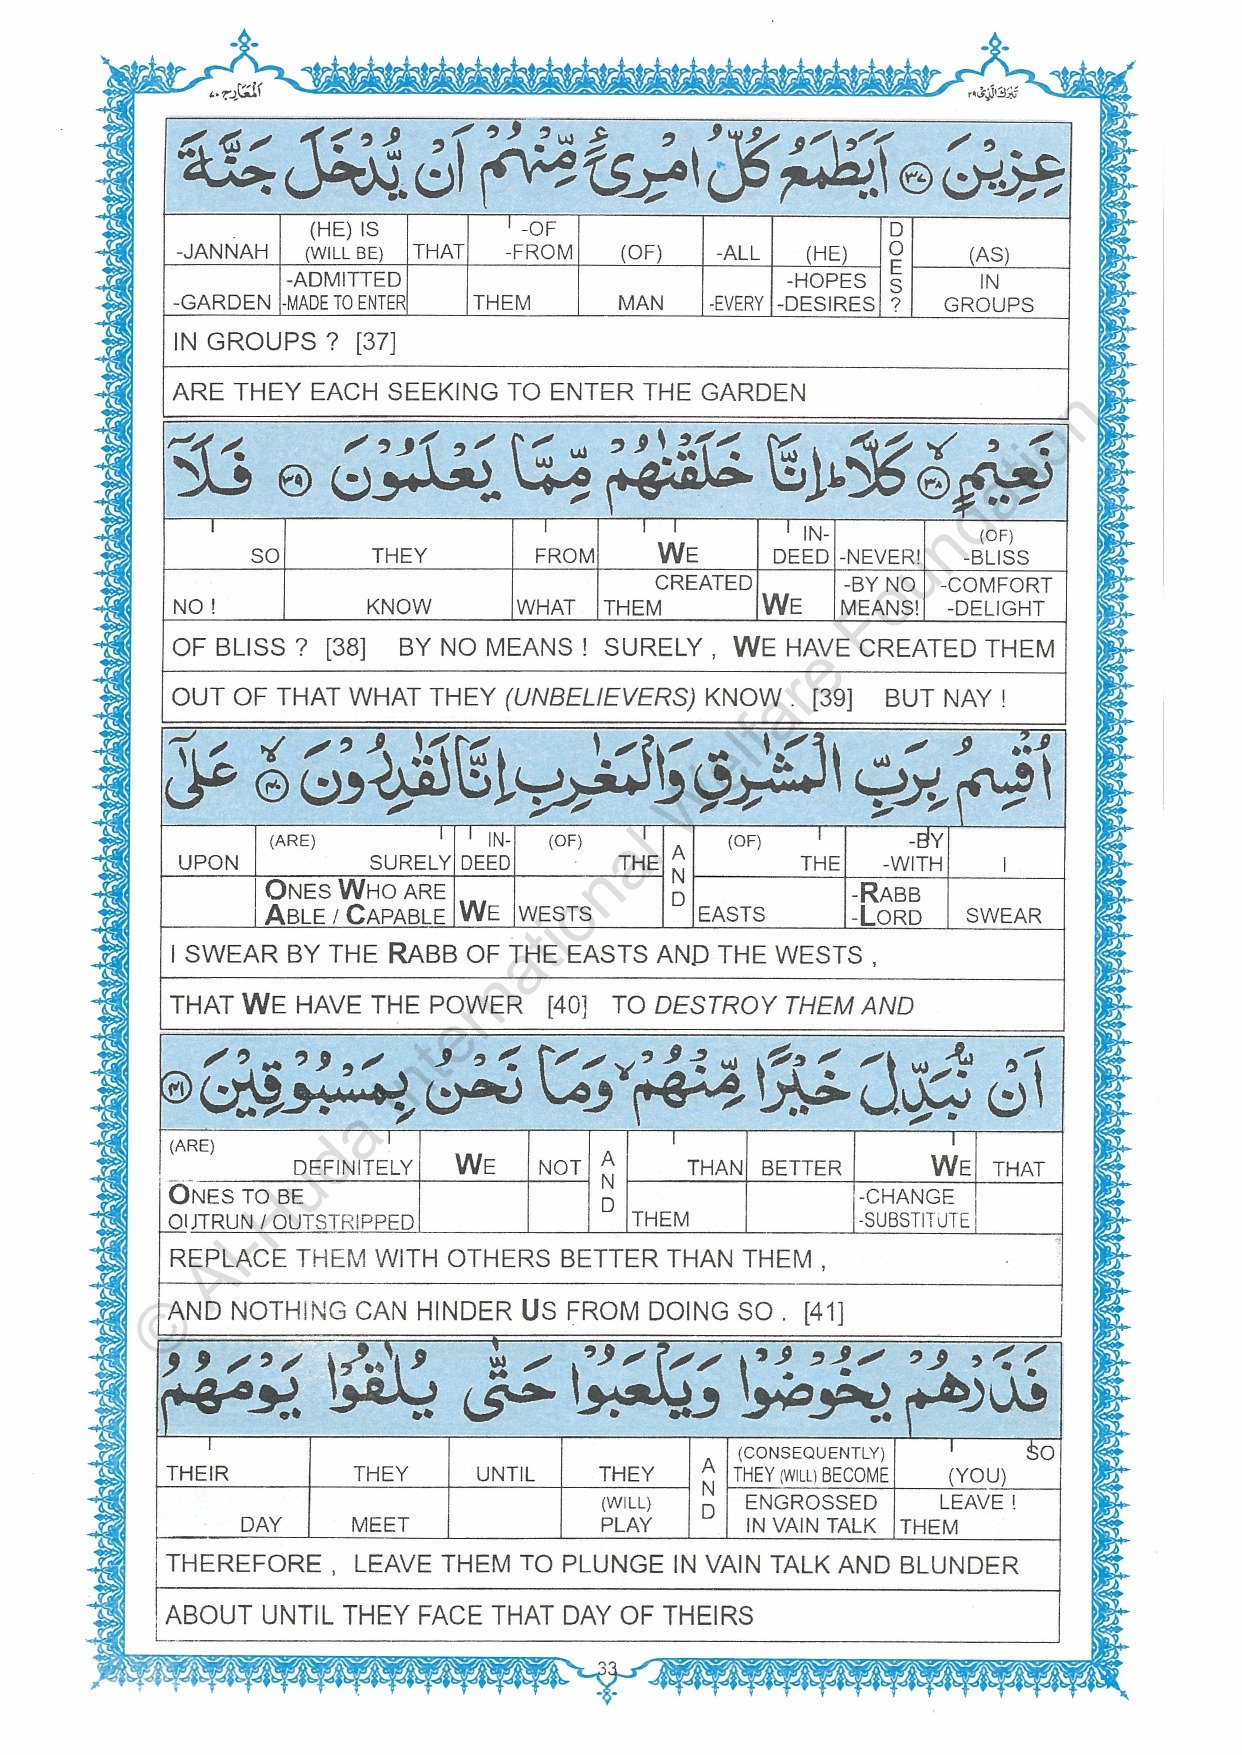 المعارج ٧٠
تبرك الذى ٢٩
عِزِيْنَ ﴿٣٧﴾ اَيَطْمَعُ كُلُّ امْرِئٍ مِّنْهُمْ اَنْ يُّدْخَلَ جَنَّةَ
-JANNAH (HE) IS (WILL BE) THAT -OF -FROM (OF) -ALL (HE) DOES? (AS)
-GARDEN -ADMITTED -MADE TO ENTER THEM MAN -EVERY -HOPES -DESIRES IN GROUPS
IN GROUPS ? [37]
ARE THEY EACH SEEKING TO ENTER THE GARDEN
نَعِيْمٍ ﴿٣٨﴾ۙ كَلَّاؕ اِنَّا خَلَقْنٰهُمْ مِّمَّا يَعْلَمُوْنَ ﴿٣٩﴾ فَلَاۤ
SO THEY FROM WE IN-DEED -NEVER! (OF) -BLISS
NO ! KNOW WHAT CREATED THEM WE -BY NO MEANS! -COMFORT -DELIGHT
OF BLISS ? [38] BY NO MEANS ! SURELY , WE HAVE CREATED THEM
OUT OF THAT WHAT THEY (UNBELIEVERS) KNOW . [39] BUT NAY !
اُقْسِمُ بِرَبِّ الْمَشٰرِقِ وَالْمَغٰرِبِ اِنَّا لَقٰدِرُوْنَ ﴿٤٠﴾ۙ عَلٰۤى
UPON (ARE) SURELY IN-DEED (OF) THE AND (OF) THE -BY -WITH I
ONES WHO ARE ABLE / CAPABLE WE WESTS EASTS -RABB -LORD SWEAR
I SWEAR BY THE RABB OF THE EASTS AND THE WESTS ,
THAT WE HAVE THE POWER [40] TO DESTROY THEM AND
اَنْ نُّبَدِّلَ خَيْرًا مِّنْهُمْۙ وَمَا نَحْنُ بِمَسْبُوْقِيْنَ ﴿٤١﴾
(ARE) DEFINITELY WE NOT AND THAN BETTER WE THAT
ONES TO BE OUTRUN / OUTSTRIPPED THEM -CHANGE -SUBSTITUTE
REPLACE THEM WITH OTHERS BETTER THAN THEM ,
AND NOTHING CAN HINDER US FROM DOING SO . [41]
فَذَرْهُمْ يَخُوْضُوْا وَيَلْعَبُوْا حَتّٰى يُلٰقُوْا يَوْمَهُمُ
THEIR THEY UNTIL THEY AND (CONSEQUENTLY) THEY (WILL) BECOME SO (YOU)
DAY MEET (WILL) PLAY ENGROSSED IN VAIN TALK LEAVE ! THEM
THEREFORE , LEAVE THEM TO PLUNGE IN VAIN TALK AND BLUNDER
ABOUT UNTIL THEY FACE THAT DAY OF THEIRS
33
© Al-Huda International Welfare Foundation